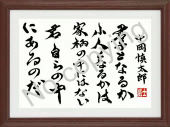 中岡慎太郎
君子となるか
小人となるかは
家柄の中にはない
君自らの中
にあるのだ